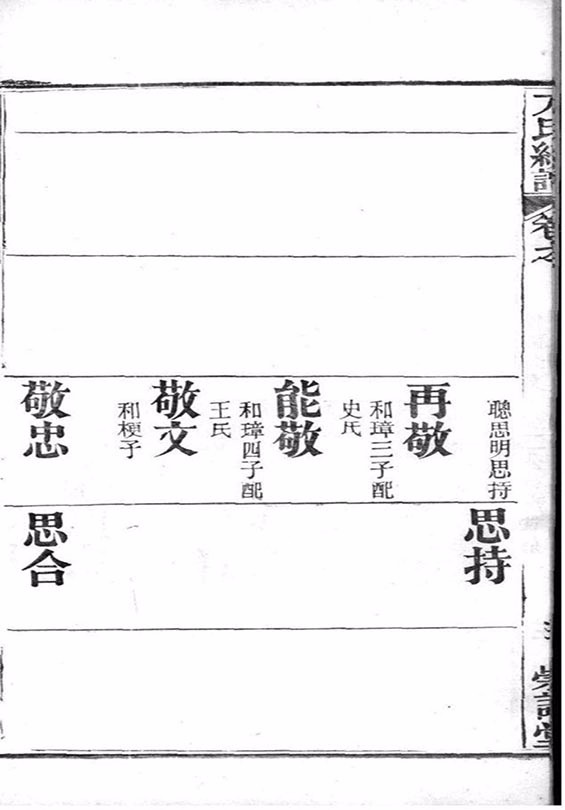 氏
卷之
聰思明思持
思持
再敬
和璋三子配
史氏
能敬
和璋四子配
王氏
敬文
和梗子
敬忠
思合